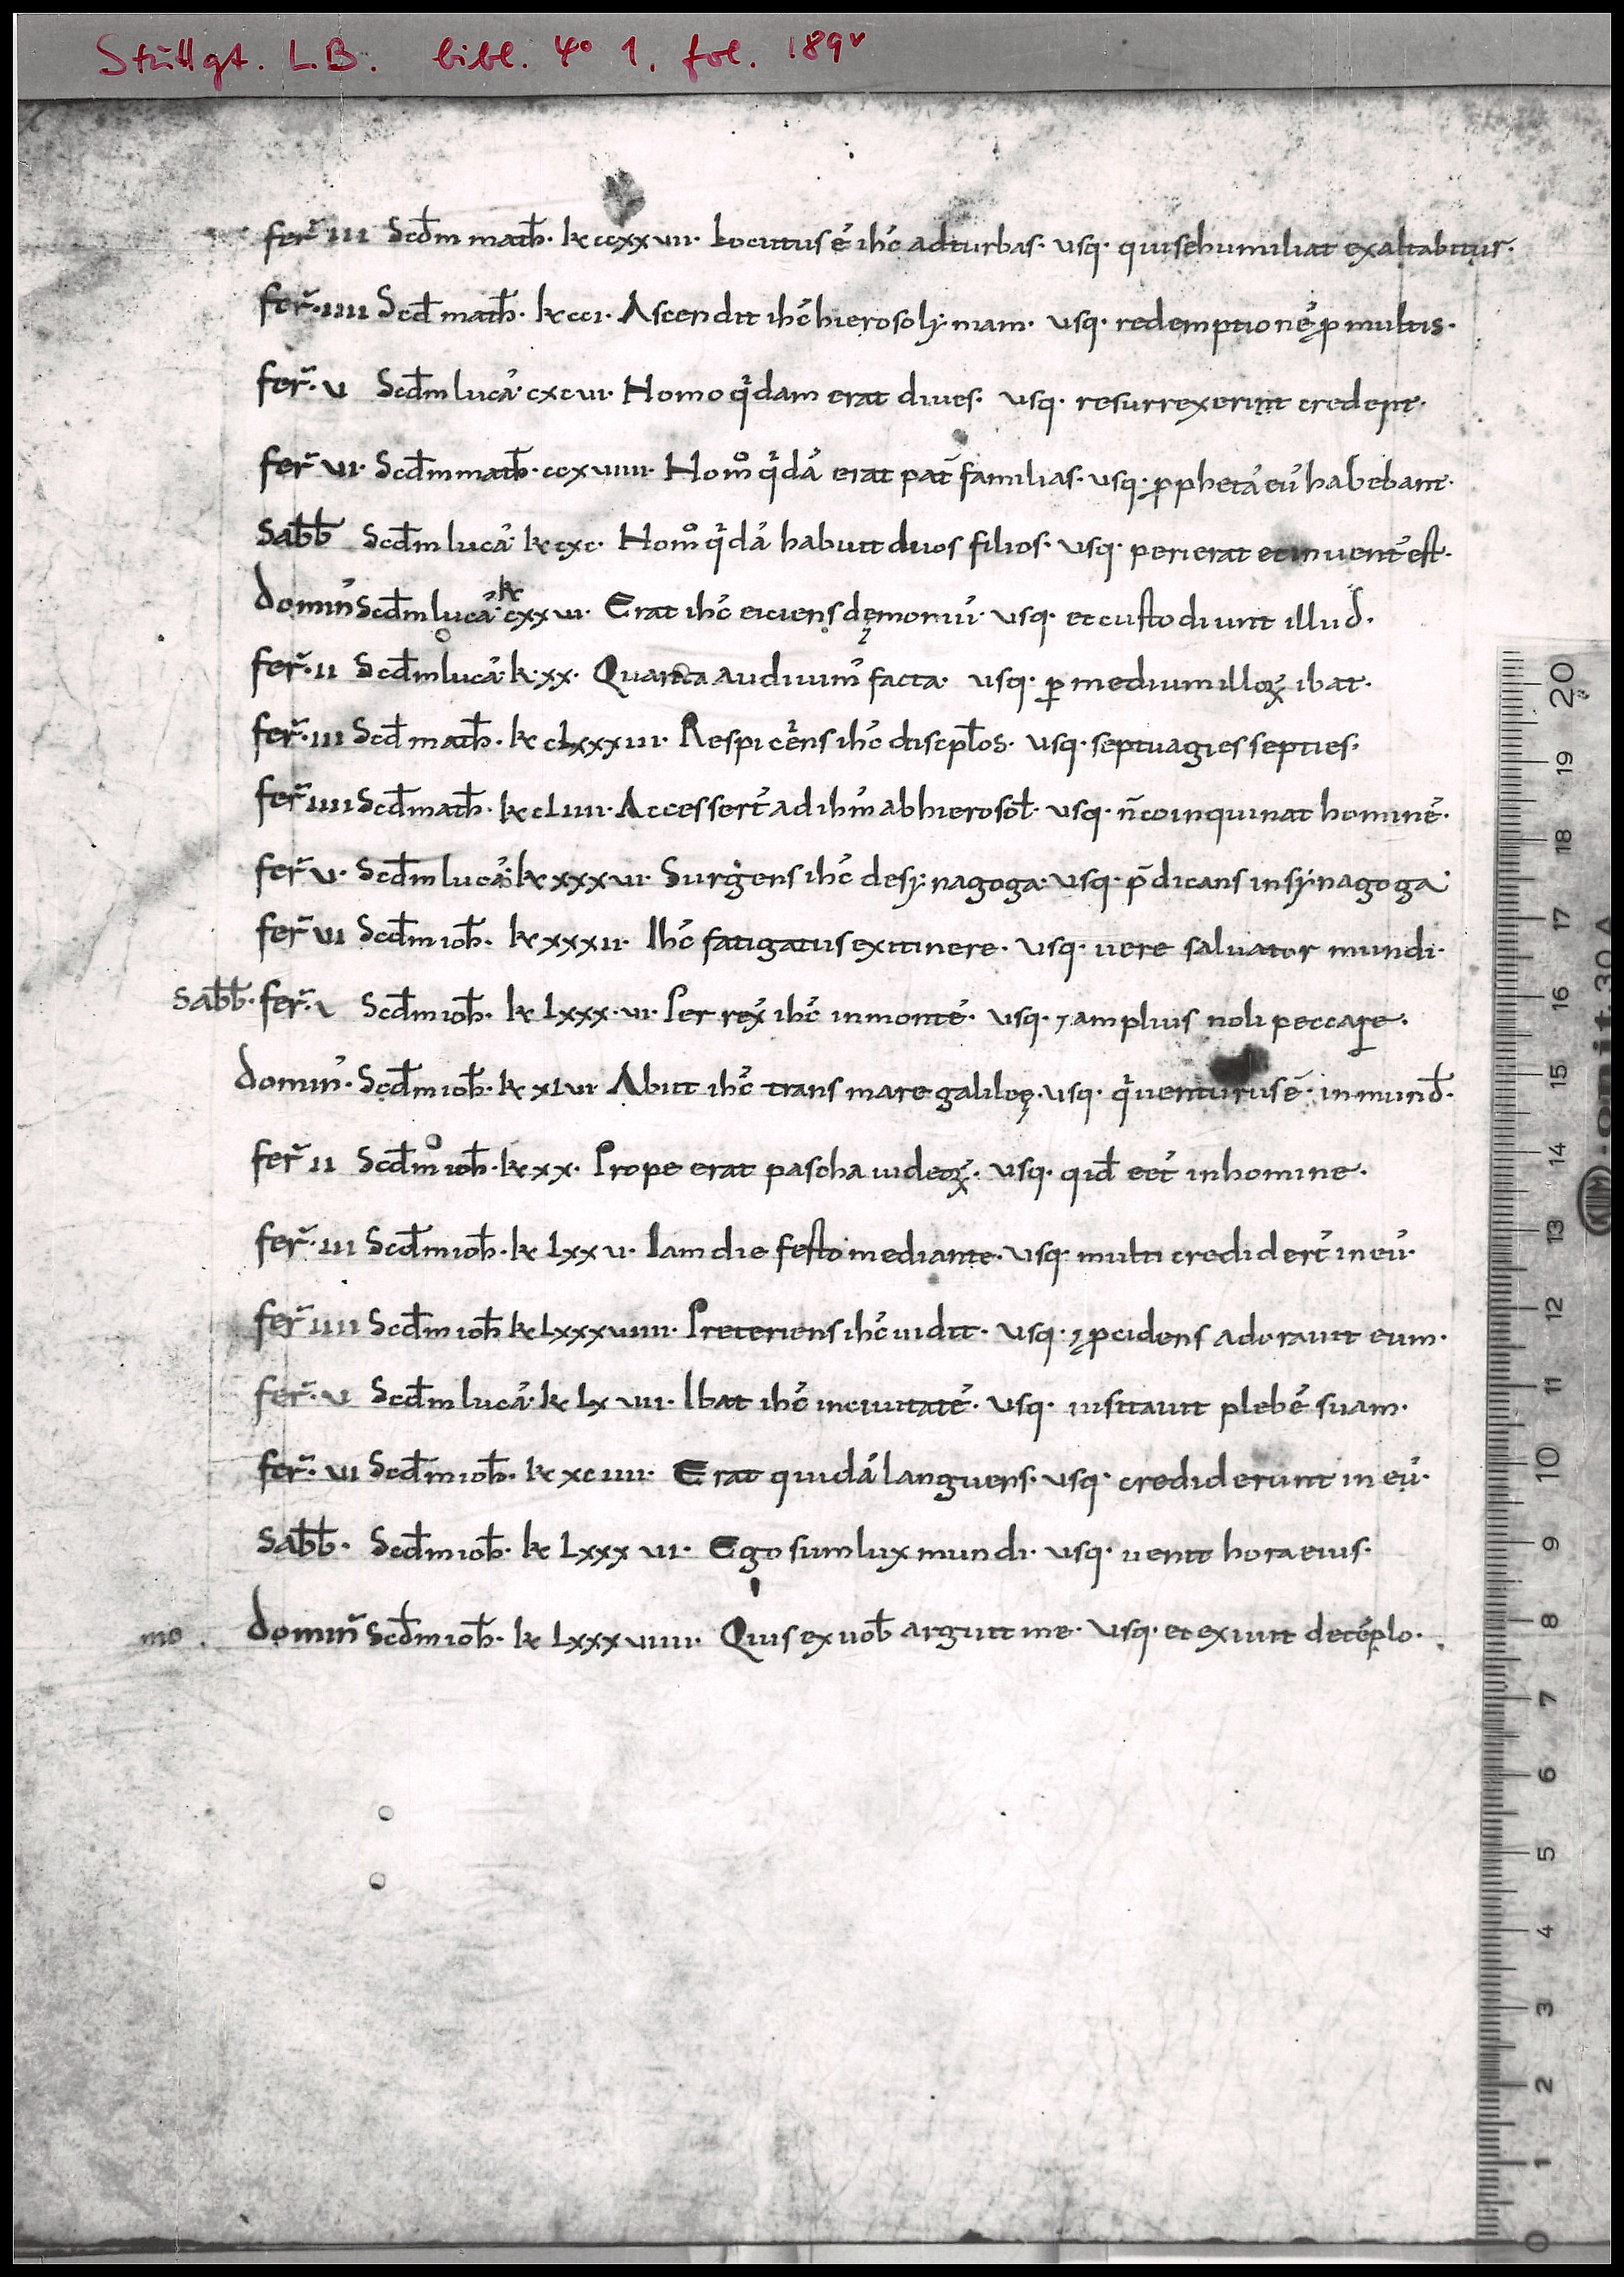 Stuttgt. L.B. bibl. 4° 1, fol. 189v
fer̃ III Scđm math̄. k ccxxvii. Locutus ē ihc̄ ad turbas. usq. qui se humiliat exaltabitur.
fer̃. IIII Scđ math̄. k cci. Ascendit ihc̄ hierosolẏmam. usq. redemptionē p multis.
fer̃. V Scđm lucā. cxcvi. Homo qͥdam erat dives. usq. resurrexerint credent.
fer̃ VI. Scđm math̄. ccxviiii. Homͦ qͥdā erat pat̄ familias. usq. pphetā eū habebant.
Sabb̄ Scđm lucā. k cxc. Homͦ qͥdā habuit duos filios. usq. perierat et invent̄ est.
Domin̄ Scđm lucā. k cxxvi. Erat ihc̄ eiciens dęmoniū. usq. et custodiunt illud.
fer̃. II Scđm lucā. k. xx. Quanta audivim̄ facta. usq. p medium illoꝝ ibat.
fer̃. III Scđ math̄. k clxxxiii. Respiciens ihc̄ discipłos. usq. septuagies septies.
fer̃ IIII Scđm math̄. k cliiii. Accessert̄ ad ihm̄ ab hierosoł. usq. n̄ coinquinat hominē.
fer̃ V. Scđm lucā. k xxxvi. Surgens ihc̄ de sẏnagoga. usq. p̄dicans in sẏnagoga
fer̃ VI Scđm ioh̄. k xxxii. Ihc̄ fatigatus ex itinere. usq. vere salvator mundi.
Sabb̄. fer̃. V Scđm ioh̄. k lxxx.vi. Perrex̄ ihc̄ in montē. usq. ⁊ amplius noli peccare.
Domin̄. Scđm ioh̄. k xlvi Abiit ihc̄ trans mare galileę. usq. qͥ venturus ē in mund̄.
fer̃ II Scđm ioh̄. k xx. Prope erat pascha iudeoꝝ. usq. qid̄ eēt in homine.
fer̃. III Scđm ioh̄. k lxxv. Iam die festo mediante. usq. multi credidert̄ in eū.
fer̃ IIII Scđm ioh̄ k lxxxviiii. Preteriens ihc̄ vidit. usq. ⁊ pcidens adoravit eum.
fer̃. V Scđm lucā. k lxviii. Ibat ihc̄ in civitatē. usq. visitavit plebē suam.
fer̃. VI Scđm ioh̄. k xciiii. Erat quidā languens. usq. crediderunt in eū.
Sabb̄. Scđm ioh̄. k lxxxvi. Ego sum lux mundi. usq. venit hora eius.
mo. Domin̄ Scđm ioh̄. k lxxxviiii. Quis ex vob̄ arguit me. usq. et exivit de tēplo.
20
19
18
17
16
15
14
13
12
11
10
9
8
7
6
5
4
3
2
1
0